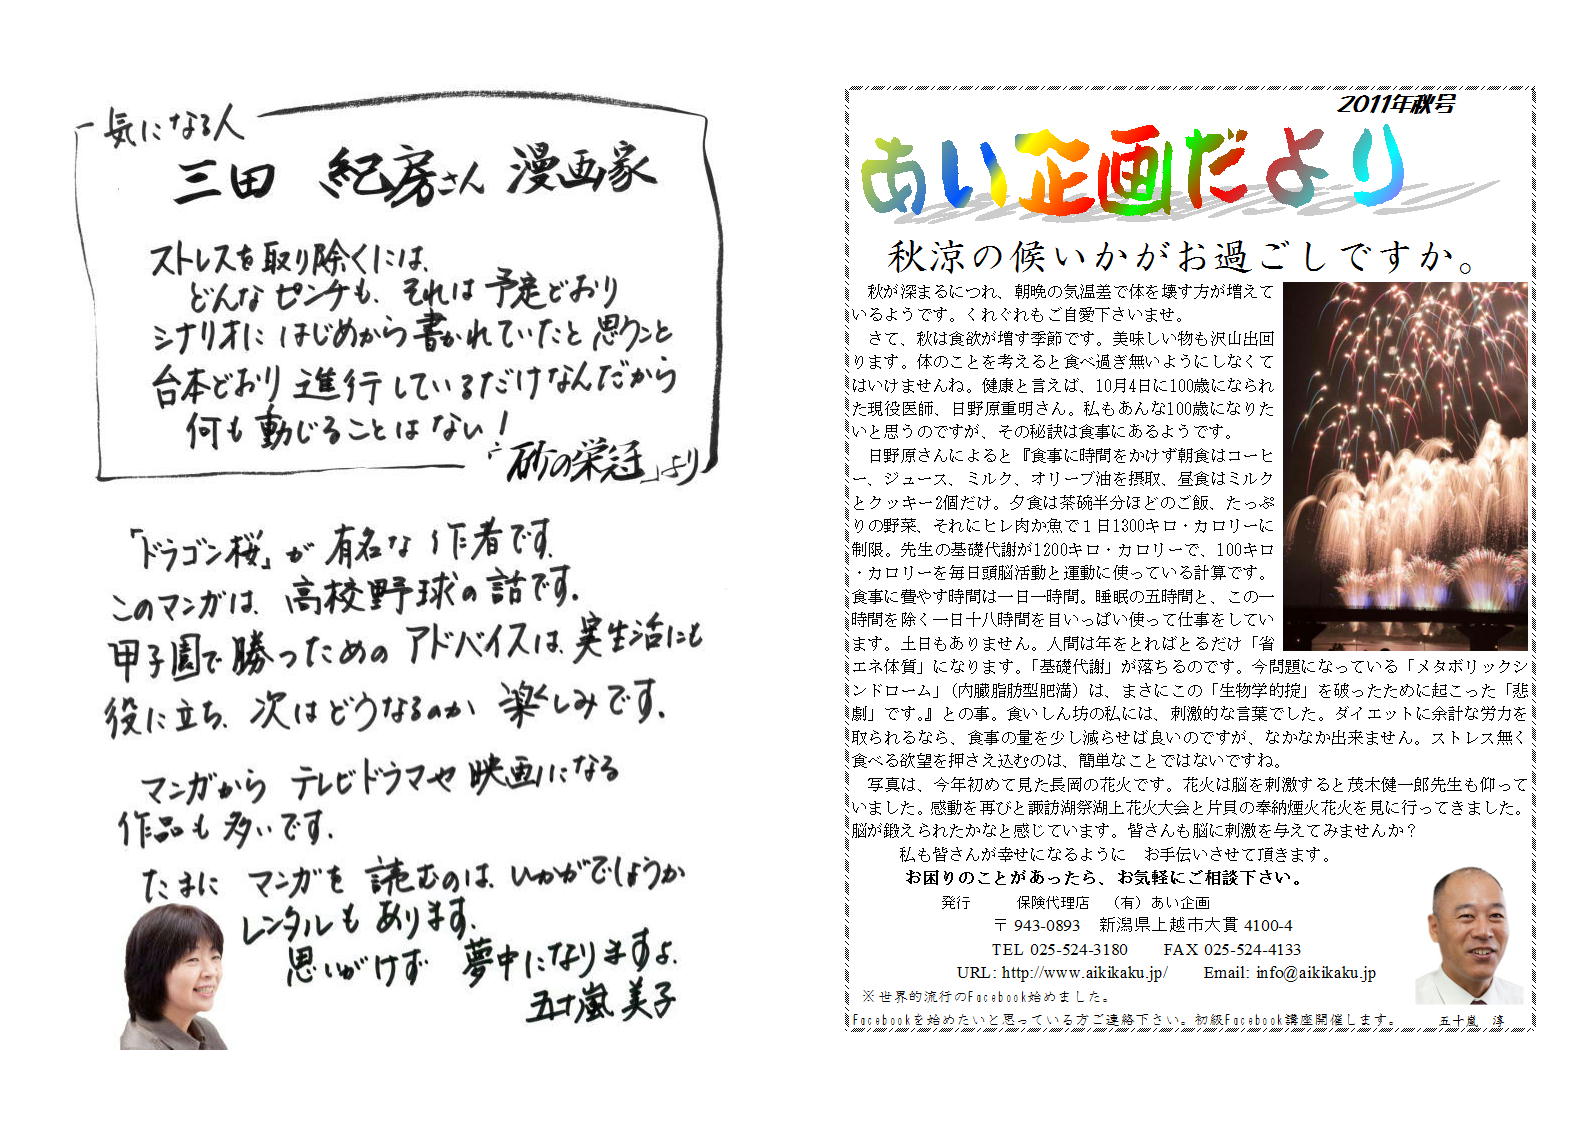 気になる人
三田 紀房さん 漫画家
ストレスを取り除くには、
どんなピンチも、それは予定どおり
シナリオにはじめから書かれていたと思うこと
台本どおり進行しているだけなんだから
何も動じることはない！
「砂の栄冠」より
「ドラゴン桜」が有名な作者です。
このマンガは、高校野球の話です。
甲子園で勝つためのアドバイスは、実生活にも
役に立ち、次はどうなるのか楽しみです。
マンガからテレビドラマや映画になる
作品も多いです。
たまにマンガを読むのは、いかがでしょうか
レンタルもあります。
思いがけず 夢中になりますよ。
五十嵐 美子
2011年秋号
あい企画だより
秋涼の候いかがお過ごしですか。
秋が深まるにつれ、朝晩の気温差で体を壊す方が増えて
いるようです。くれぐれもご自愛下さいませ。
さて、秋は食欲が増す季節です。美味しい物も沢山出回
ります。体のことを考えると食べ過ぎ無いようにしなくて
はいけませんね。健康と言えば、10月4日に100歳になられ
た現役医師、日野原重明さん。私もあんな100歳になりた
いと思うのですが、その秘訣は食事にあるようです。
日野原さんによると『食事に時間をかけず朝食はコーヒ
ー、ジュース、ミルク、オリーブ油を摂取、昼食はミルク
とクッキー2個だけ。夕食は茶碗半分ほどのご飯、たっぷ
りの野菜、それにヒレ肉か魚で１日1300キロ・カロリーに
制限。先生の基礎代謝が1200キロ・カロリーで、100キロ
・カロリーを毎日頭脳活動と運動に使っている計算です。
食事に費やす時間は一日一時間。睡眠の五時間と、この一
時間を除く一日十八時間を目いっぱい使って仕事をしてい
ます。土日もありません。人間は年をとればとるだけ「省
エネ体質」になります。「基礎代謝」が落ちるのです。今問題になっている「メタボリックシ
ンドローム」（内臓脂肪型肥満）は、まさにこの「生物学的掟」を破ったために起こった「悲
劇」です。』との事。食いしん坊の私には、刺激的な言葉でした。ダイエットに余計な労力を
取られるなら、食事の量を少し減らせば良いのですが、なかなか出来ません。ストレス無く
食べる欲望を押さえ込むのは、簡単なことではないですね。
写真は、今年初めて見た長岡の花火です。花火は脳を刺激すると茂木健一郎先生も仰って
いました。感動を再びと諏訪湖祭湖上花火大会と片貝の奉納煙火花火を見に行ってきました。
脳が鍛えられたかなと感じています。皆さんも脳に刺激を与えてみませんか？
私も皆さんが幸せになるように　お手伝いさせて頂きます。
お困りのことがあったら、お気軽にご相談下さい。
発行　　保険代理店　（有）あい企画
〒 943-0893　新潟県上越市大貫 4100-4
TEL 025-524-3180　　FAX 025-524-4133
URL: http://www.aikikaku.jp/　　Email: info@aikikaku.jp
※世界的流行のFacebook始めました。
Facebookを始めたいと思っている方ご連絡下さい。初級Facebook講座開催します。
五十嵐　淳